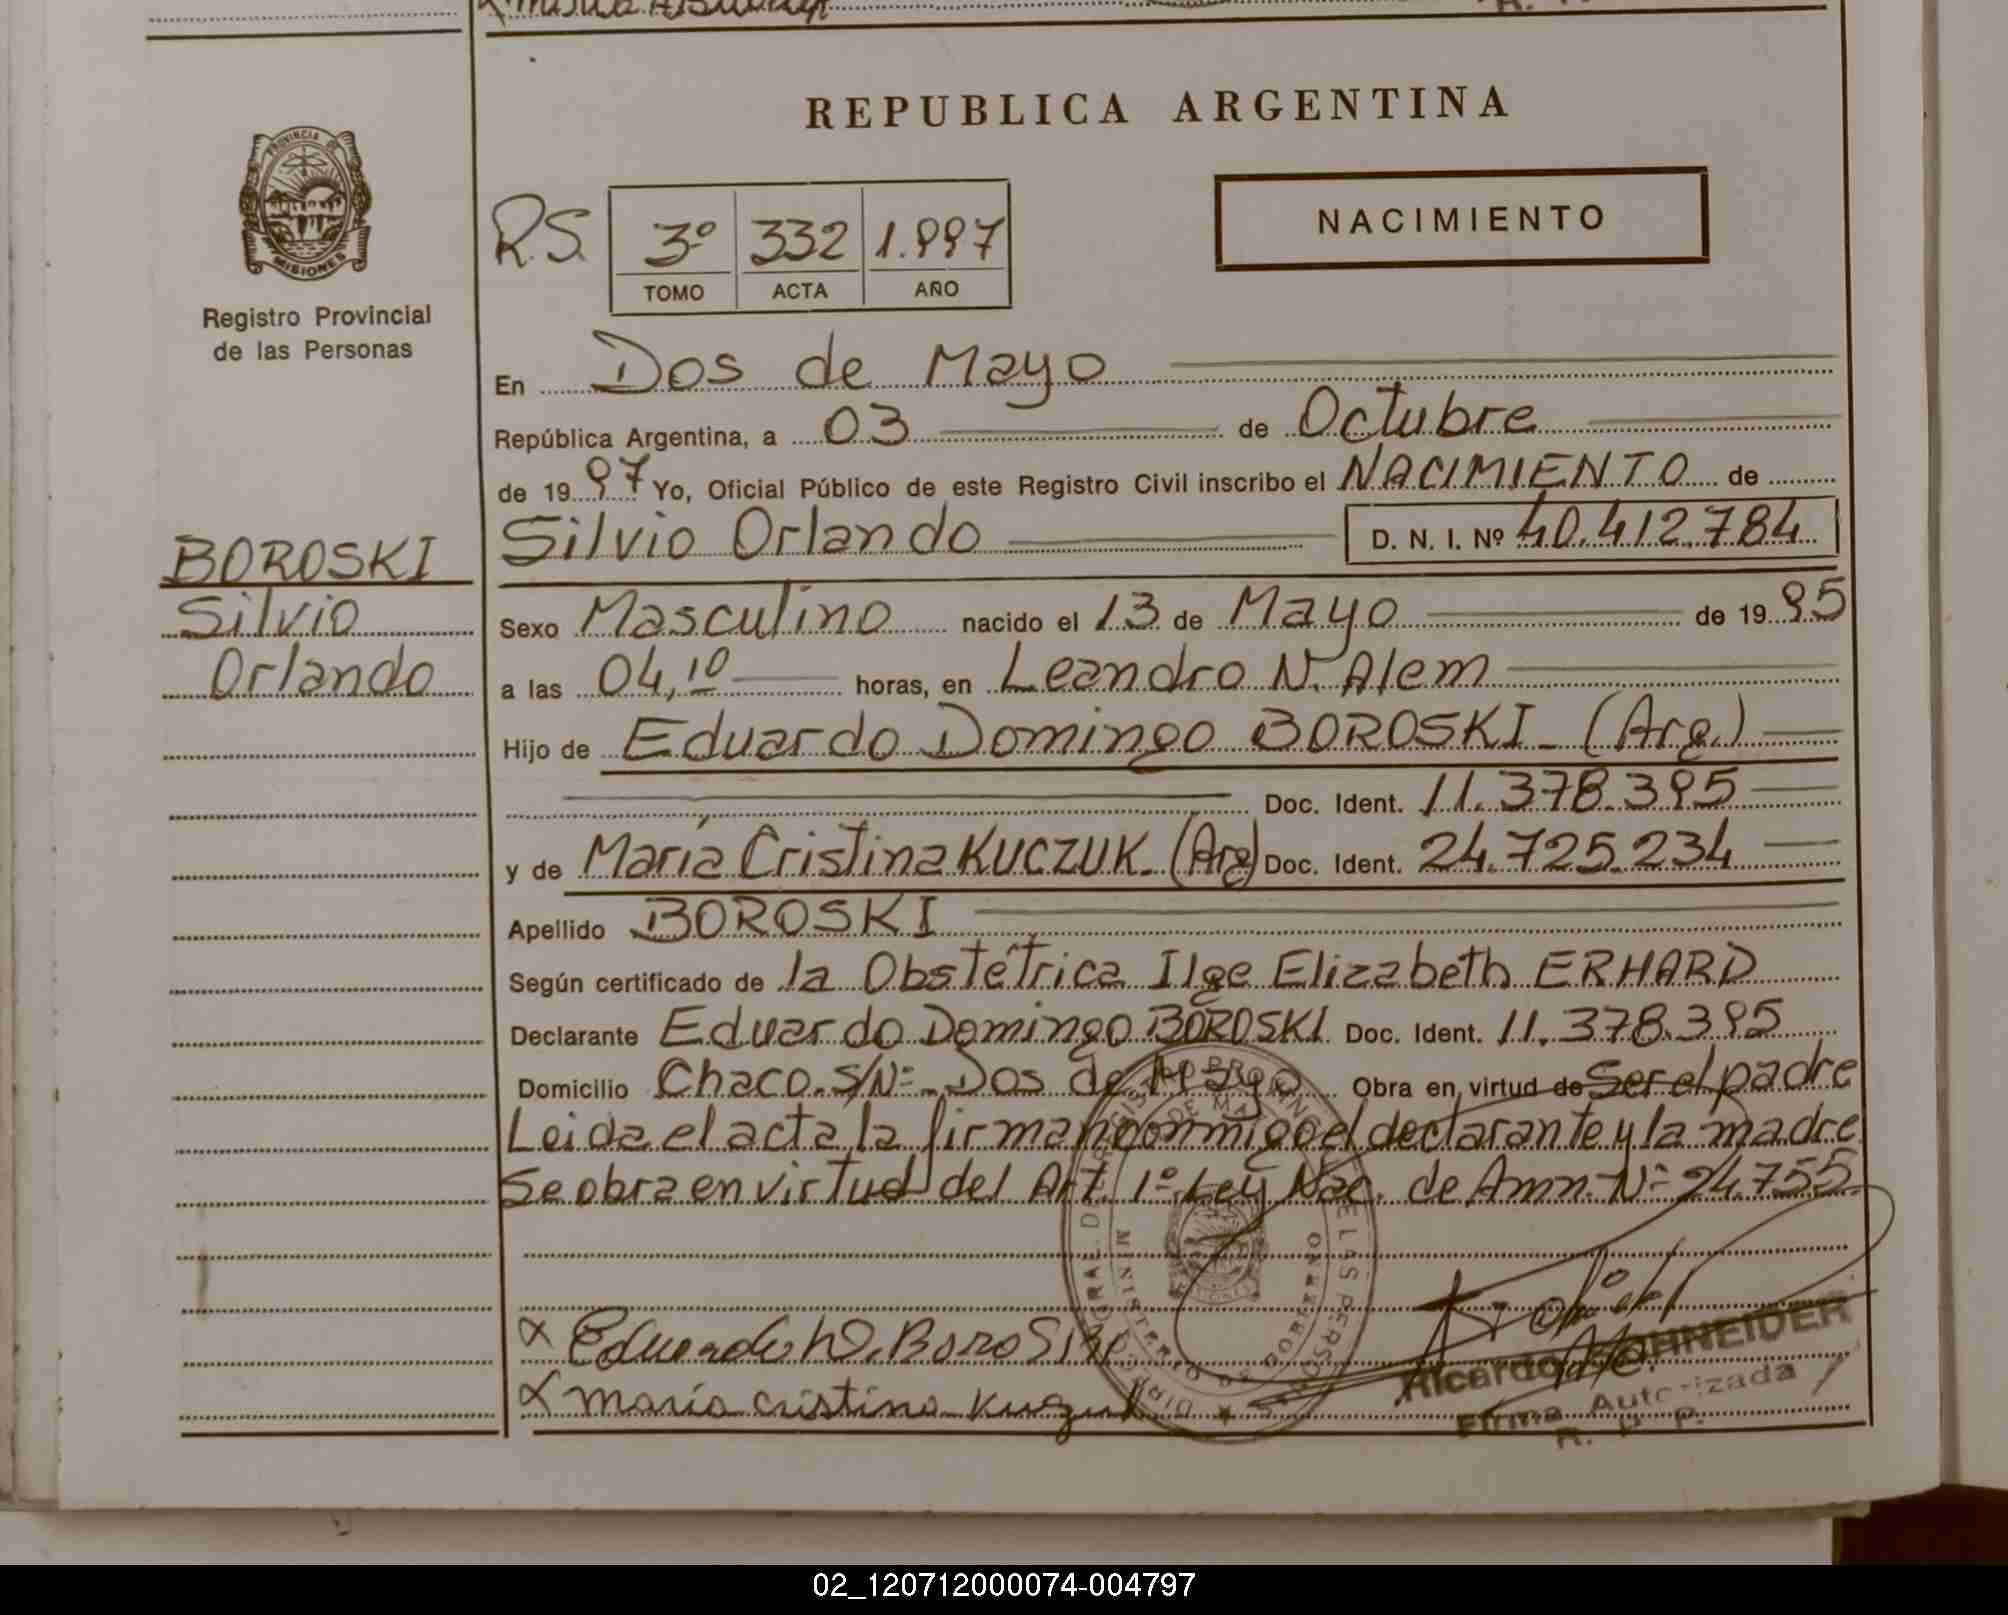 REPUBLICA ARGENTINA
PROVINCIA DE
MISIONES
Registro Provincial
de las Personas
R.S.
3º 332 1.997
TOMO ACTA AÑO
NACIMIENTO
En Dos de Mayo
República Argentina, a 03 de Octubre
de 1997 Yo, Oficial Público de este Registro Civil inscribo el NACIMIENTO de
Silvio Orlando D. N. I. Nº 40.412.784
BOROSKI
Silvio
Orlando
Sexo Masculino nacido el 13 de Mayo de 1995
a las 04,10 horas, en Leandro N. Alem
Hijo de Eduardo Domingo BOROSKI_ (Arg.)
Doc. Ident. 11.378.395
y de María Cristina KUCZUK_ (Arg) Doc. Ident. 24.725.234
Apellido BOROSKI
Según certificado de la Obstétrica Ilge Elizabeth ERHARD
Declarante Eduardo Domingo BOROSKI Doc. Ident. 11.378.395
Domicilio Chaco S/Nº_ Dos de Mayo Obra en virtud de Ser el padre
Leida el acta la firman conmigo el declarante y la madre
Se obra en virtud del Art. 1º Ley Nac. de Amn. Nº 24.755
Eduardo D. Boroski
maría cristina Kuczuk
Ricardo SCHNEIDER
Firma Autorizada
R. P. P.
MINISTERIO DE GOBIERNO
02_120712000074-004797